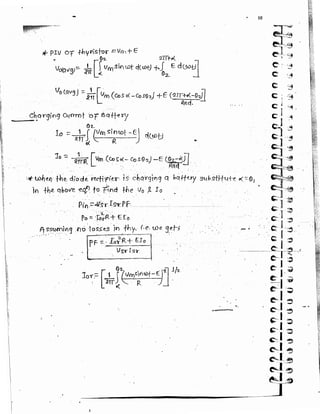 10
* PIV of thyristor = Vm + E
Vo(avg) = 1/2π [ ∫α^θ2 Vm sin ωt d(ωt) + ∫θ2^2π+α E d(ωt) ]
Vo(avg) = 1/2π [ Vm (cos α - cos θ2) + E (2π+α-θ2) ]
Charging Current of Battery
Io = 1/2π ∫α^θ2 ( Vm sin ωt - E / R ) d(ωt)
Io = 1/2πR [ Vm (cos α - cos θ2) - E (θ2-α) ]
Rad
* when the diode rectifier is charging a battery substitute α = θ1
in the above eqn to find the Vo & Io
Pin = Vsr Isr PF
Po = Ior² R + E Io
Assuming no losses in thy. i.e. we get
PF = Ior² R + E Io / Vsr Isr
Ior = [ 1/2π ∫α^θ2 ( Vm sin ωt - E / R )² ]^1/2